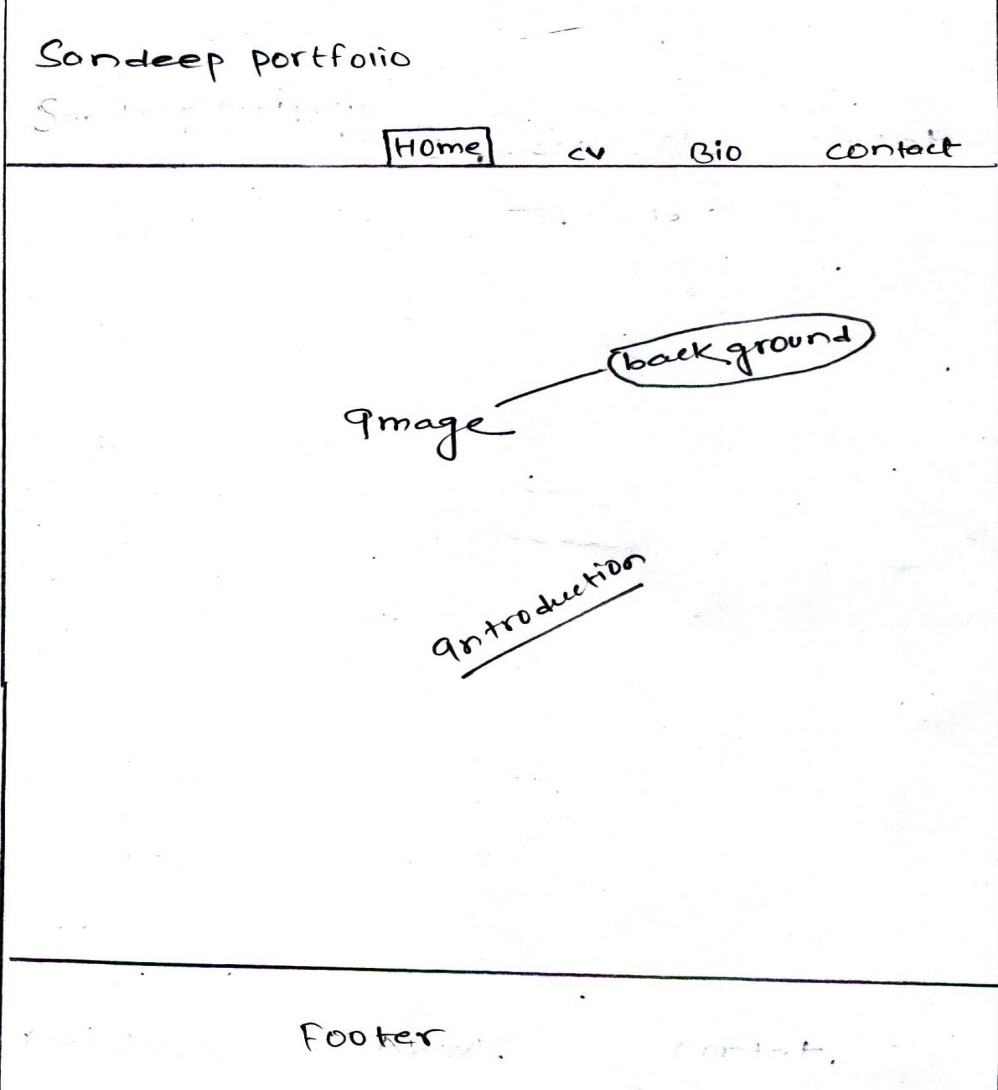 Sandeep portfolio
Home CV Bio contact
background
Image
Introduction
Footer